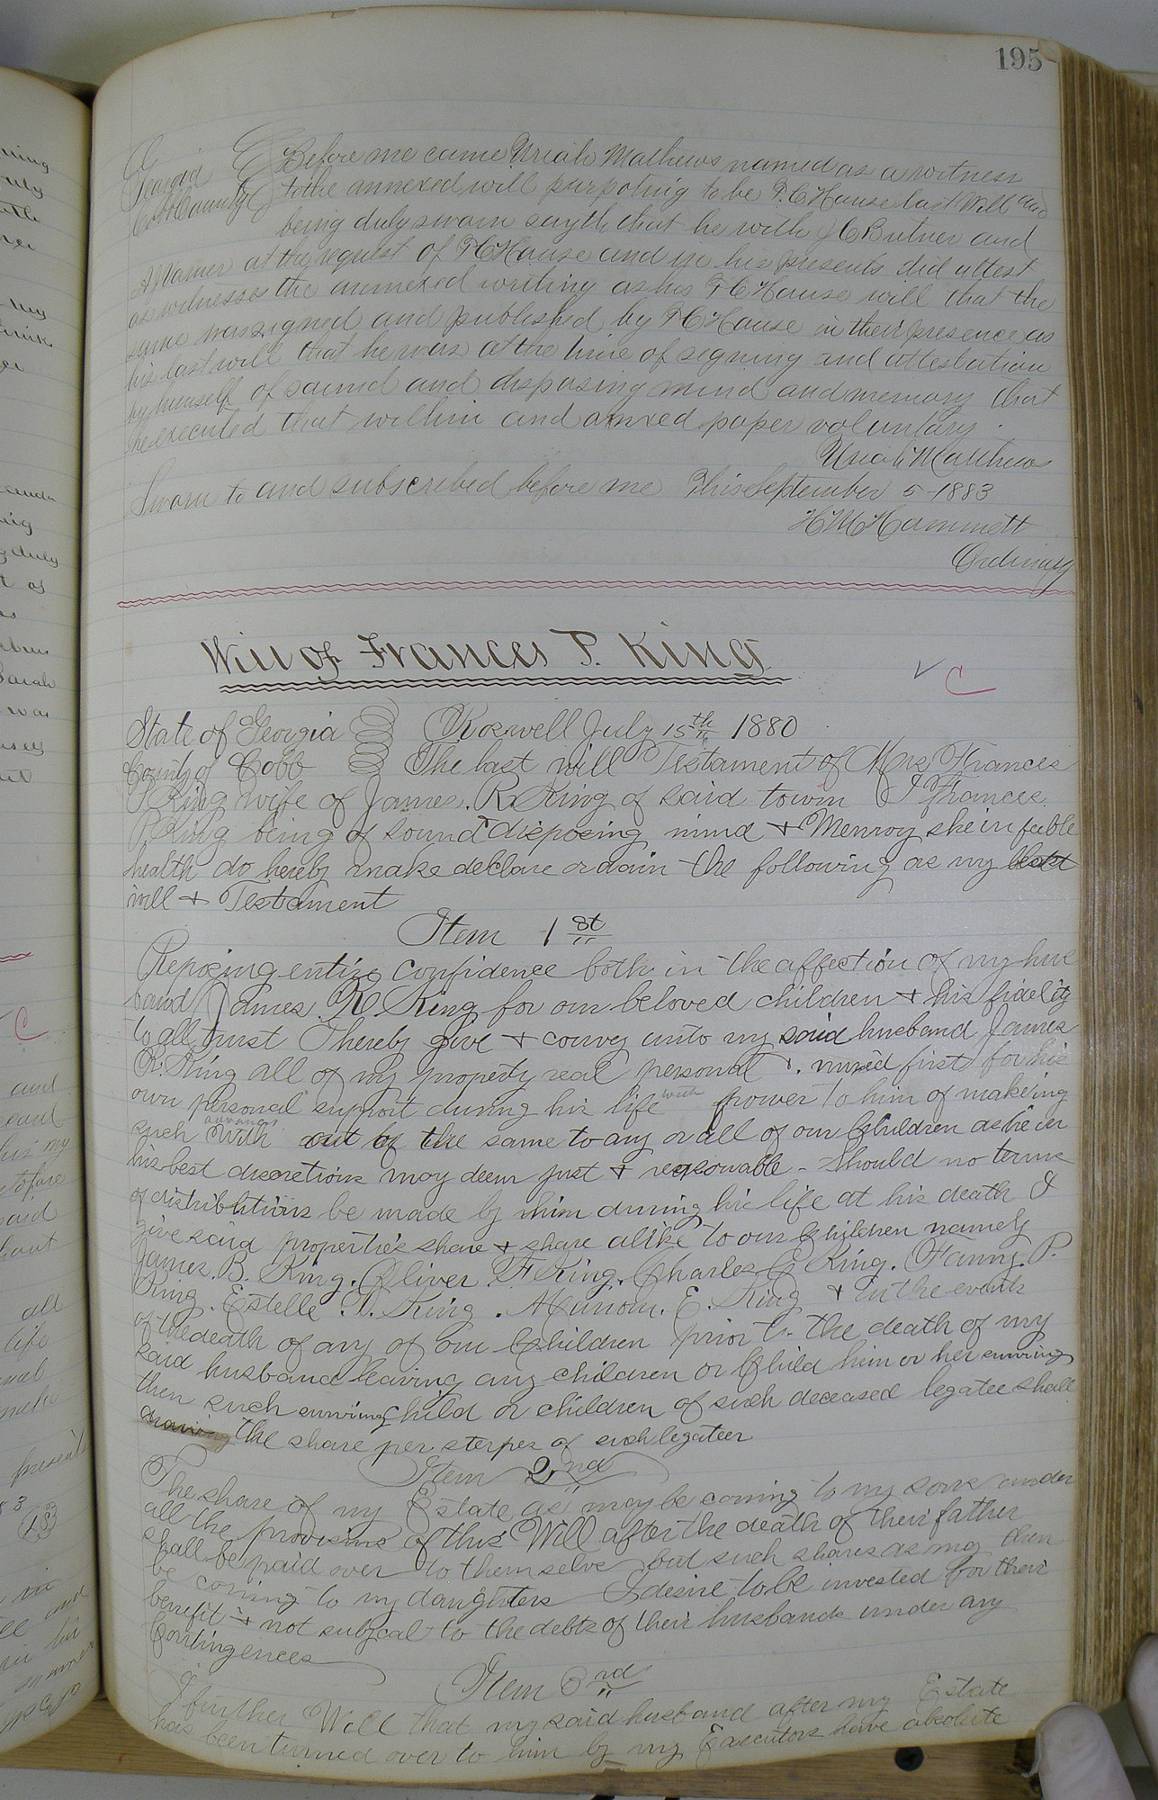 195
Georgia Before me came Uriah Mathews named as a witness
Cobb County to the annexed will purpoting to be P. C House last Will and
being duly sworn sayth that he with J C Butner and
at the request of P C House and in his presents did attest
as witnesses the annexed writing as his P C House will that the
same was signed and published by P C House in their presence as
his last will that he was at the time of signing and attestation
by himself of saund and disposing mind and memory that
he executed that within and anxed paper voluntary.
Uriah Matthews
Sworn to and subscribed before me This September 5-1883
H M Hammett
Ordinary
Will of Frances P. King
State of Georgia Roswell July 15th 1880
County of Cobb The last will Testament of Mrs Frances
P King wife of James. R. King of said town I Frances
P King being of sound disposing mind + Memroy she in feeble
health do hereby make declare ordain the following as my last
will + Testament
Item 1st
Reposing entire confidence both in the affection of my hus
band James. R. King for our beloved children + his fidelity
to all trust I hereby give + convey unto my said husband James
R. King all of my property real personal +. mixed first for his
own personal support during his life with power to him of makeing
such advances out of the same to any or all of our Children as he in
his best discretion may deem just + reasonable - Should no terms
of distributions be made by him during his life at his death I
give said properties share + share alike to our Children namely
James. B. King. Oliver. F King. Charles C King. Fanny. P.
King. Estelle. D. King. Marion. E. King + in the events
of the death of any of our Children prior to the death of my
said husband leaving any children or Child him or her surviving
then such surviving Child or children of such deceased legatee shall
the share per sterpes of such legatee
Item 2nd
The share of my Estate as may be coming to my sons under
all the provisins of this Will after the death of their father
shall be paid over to themselve but such shares as may then
be coming to my daughters I desire to be invested for their
benefit + not subjcal to the debts of their husbands under any
Contingences
Item 3rd
I further Will that my said husband after my Estate
has been turned over to him by my Executors have absolute